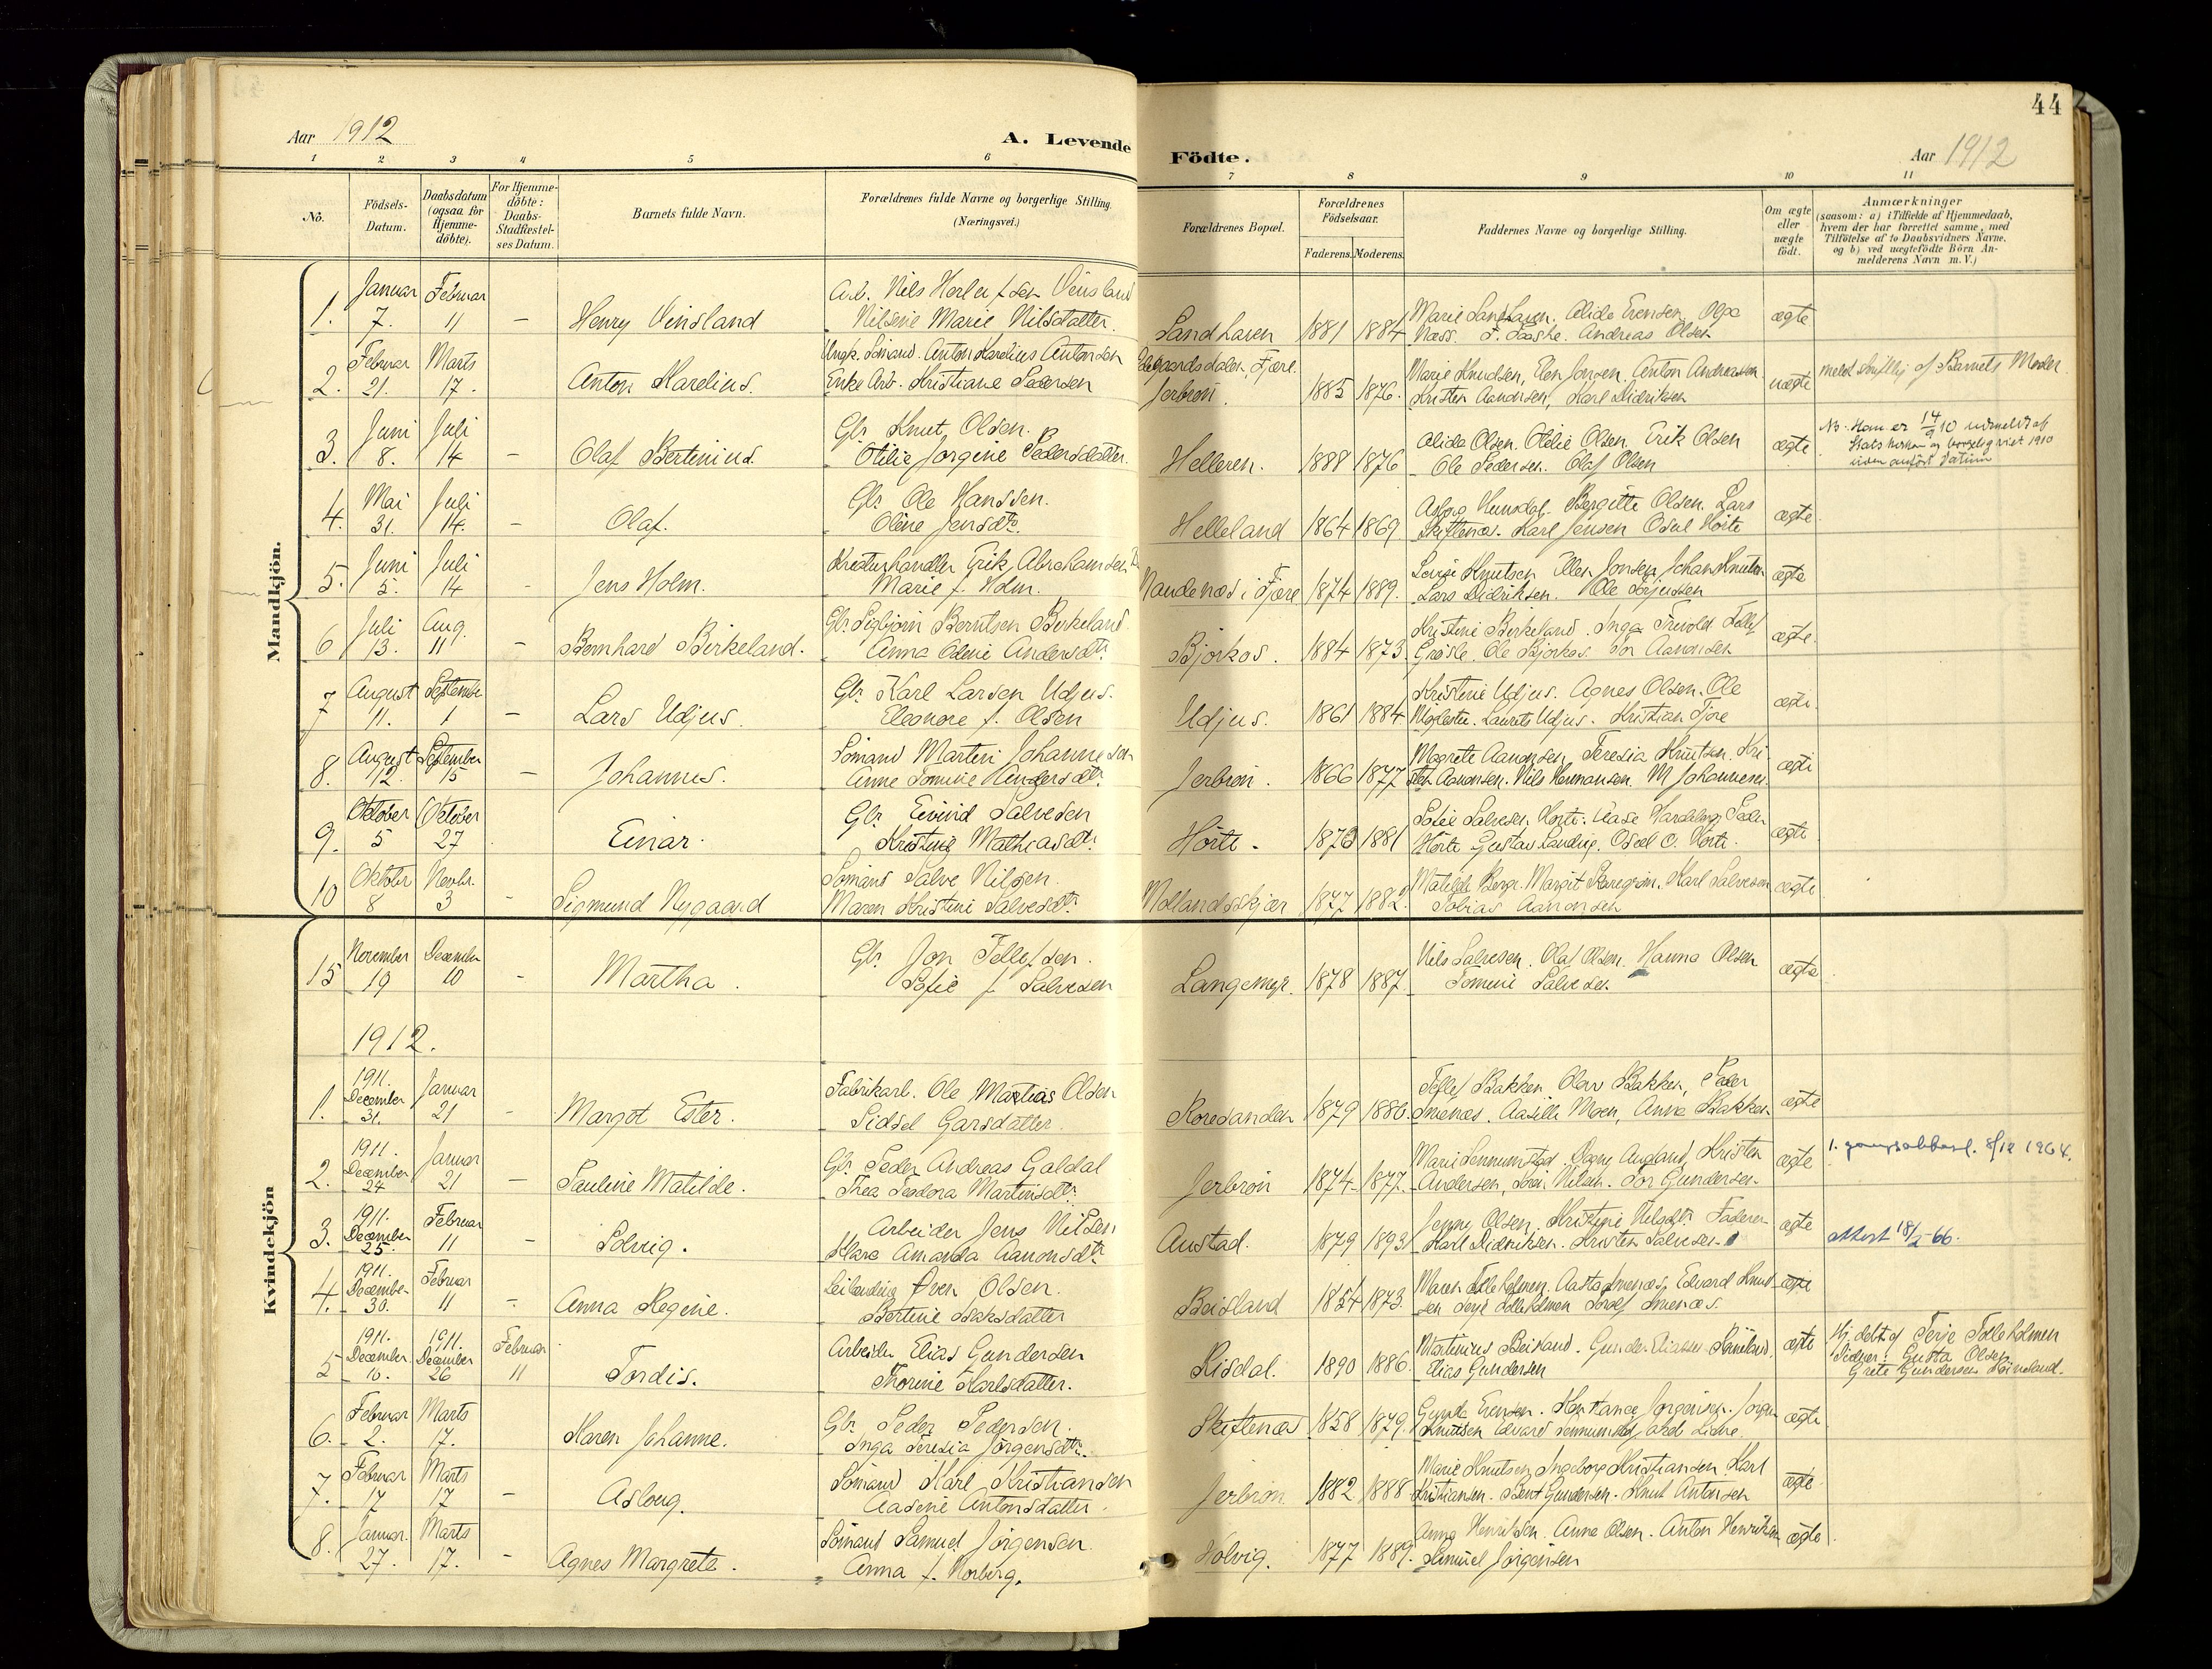 44
Aar 1912
A. Levende Födte.
Aar 1912
1 2 3 4 5 6 7 8 9 10 11
No.
Födsels-Datum.
Daabsdatum (ogsaa for Hjemme-döbte).
For Hjemme-döbte: Daabs-Stadfæstel-ses Datum.
Barnets fulde Navn.
Forældrenes fulde Navne og borgerlige Stilling. (Næringsvei.)
Forældrenes Bopæl.
Forældrenes Födselsaar.
Faderens. Moderens.
Faddernes Navne og borgerlige Stilling.
Om ægte eller uægte födt.
Anmærkninger
(saasom: a) i Tilfælde af Hjemmedaab,
hvem der har forrettet samme, med
Tilföielse af to Daabsvidners Navne,
og b) ved uægtefödte Börn An-
melderens Navn m. V.)
Mandkjön.
Januar Februar Arb. Nils Vinsland Marie Sandhaven. Alida Olga
1. 7. 11 – Henry Vinsland Nilsine Marie Nilsdatter. Sandhaven 1881 1884 Næss. Andreas Olsen ægte
Februar Marts Ungk. Sömand. Anton Karelius Antonsen Fjære. Marie Knudsen, Elen Jonsen. Anton Andreassen
2. 21. 17. Anton Karelius. Enke Arb. Kristiane Pedersen Jerbron. 1885 1876. Kristen Aanonsen, Karl Didriksen uægte meldt skriftlig af Barnets Moder
Juni Juli Gbr. Knut Olsen. Alida Olsen. Otelie Olsen. Erik Olsen Nb. Han er 14/9 10 udmeldt af
3. 8. 14 – Olaf Bertinius. Otilie Jorgine Pedersdatter. Helleren. 1888 1876 Ole Pedersen. Olaf Olsen ægte Statskirken og borgerlig viet 1910
uden anfört Datum
Mai Juli Gbr. Ole Hanssen. Bergitte Olsen. Lars
4. 31. 14. – Olaf. Oline Jensdtr. Helleland 1864 1869 Skiftenæs. Karl Jensen Osul Hörte ægte.
Juni Juli Kreaturhandler Erik Abrahamsen Lovise Knutsen Ellen Jonsen, Johan Knutsen
5. 5. 14 – Jens Holm. Marie f. Holm. i Fjære 1874 1889. Lars Didriksen. Ole ægte
Juli Aug. Gbr. Sigbjörn Berntsen Birkeland. Kristine Birkeland. Inga Tellef
6 13. 11 – Bernhard Birkeland. Anna Andersdtr. Björkos. 1884 1873. Ole Björkos. Aanonsen ægte.
August September Gbr. Karl Larsen Udjus. Kristine Udjus. Agnes Olsen. Ole
7 11. 1 – Lars Udjus. Eleonore f. Olsen Udjus. 1861 1884 Laurits Udjus. Kristian Fjære ægte.
August September Sömand Martin Johannesen Magrete Aanonsen, Teresia Knutsen. Kri-
8. 12. 15 – Johannes. Anne Tomine Jerbron. 1866 1877 sten Aanonsen. Nils Hermansen. M. Johannesen. ægte
Oktober Oktober Gbr. Eivind Salvesen Sofie Salvesen Hörte. Aase Peder
9. 5 27 Einar. Kristine Mathiasdtr. Hörte. 1881 Hörte Gustav Osvel O. Hörte. ægte
Oktober Novbr. Sömand Salve Nilsen. Matilde Berge. Margit Karl Salvesen
10 8 3 – Sigmund Nygaard Maren Kristine Salvesdtr. Mollandsskjær 1877 1882. Tobias Aanonsen ægte
Kvindekjön
November December Gbr. Jon Tellefsen. Nils Salvesen. Olaf Olsen. Hanna Olsen
15 19 10 – Martha. Sofie f. Salvesen Langemyr. 1878 1887. Tomine Salvesen ægte
1912.
1911. December Januar Fabrikarb. Ole Mathias Olsen Tellef Bakken Olav Bakken, Peder
1. 31. 21 – Margot Ester. Sidsel Garsdatter. Roresanden 1879 1886. Smenæs. Moen, Anna Bakken ægte
1911. December Januar Gbr. Peder Andreas Galdal Marie Dagny Augland, Kristen
2. 24 21 – Pauline Matilde. Thea Teodora Martinsdtr. Jerbron 1874 1877. Andersen, Nilsen. Tor Gundersen. ægte 8/12 1964.
1911. December Februar Arbeider Jens Nilsen Jenny Olsen. Kristine Faderen
3. 25. 11 – Solveig. Klara Amanda Aanonsdtr. Austad. 1879 1893. Karl Didriksen. Kristen Salvesen. ægte attest 18/2-66.
1911. December Februar Leilænding Even Olsen. Maren Tolleholmen, Aasta Smenæs, Edvard Knud-
4. 30. 11 – Anna Regine. Bertine Isaksdatter Beisland 1854 1873. sen Terje Tolleholmen Smenæs. ægte
1911. December 1911. December Februar Arbeider Elias Gundersen Martinius Beisland. Gunder Eliassen Hj. döbt af Terje Tolleholmen
5 10. 26 11 Tordis. Thorine Karlsdatter. Risdal. 1890 1886. Elias Gundersen ægte Vidner: Gusta Olsen
Grete Gundersen
Februar Marts Gbr. Peder Pedersen. Gunda Evensen. Konstance Jörgensen. Jörgen
6. 2. 17. Karen Johanne. Inga Teresia Jörgensdtr. Skiftenæs 1858 1879. Knutsen Edvard ægte
Februar Marts Sömand Karl Kristiansen Marie Knutsen, Ingeborg Kristiansen. Karl
7. 17 17 – Aslaug. Aasene Antonsdatter. Jerbron 1882 1888 Kristiansen. Bent Gundersen. Knut Antonsen ægte
Januar. Marts Sömand Samuel Jörgensen Anna Henriksen. Anne Olsen. Anton Henriksen
8. 27. 17. – Agnes Margrete. Anna f. Norberg. Holvig. 1877 1889. Samuel Jörgensen ægte